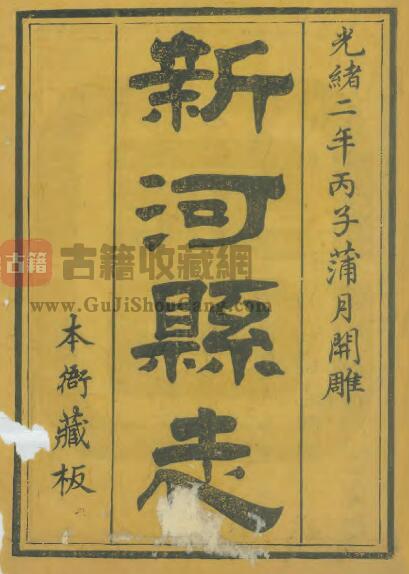 光緒二年丙子蒲月開雕
新河縣志
本衙藏板
古籍
古籍收藏網
www.GuJiShouCang.com